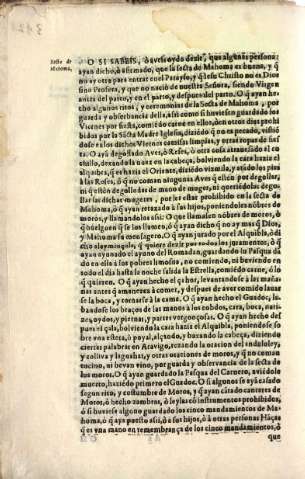 Secta de
Mahoma.
O SI SABEIS, ò aveis oydo dezir, que algunas personas
ayan dicho, ò afirmado, que la secta de Mahoma es buena, y q̃
no ay otra para entrar en el Parayso, y q̃ Iesu Christo no es Dios
sino Profeta, y que no naciò de nuestra Señora, siendo Virgen
antes del parto, y en el parto, y despues del parto. O q̃ ayan he-
cho algunos ritos, y ceremonias de la Secta de Mahoma, por
guarda y observancia della, assi como si huviessen guardado los
Viernes por fiesta, comiendo carne en ellos, ò en otros dias prohi
bidos por la Santa Madre Iglesia, diziẽdo q̃ no es pecado, vistiẽ
dose en los dichos Viernes camisas limpias, y otras ropas de fies-
ta. O ayã degollado Aves, ò Reses, ò otra cosa atravesado el cu
chillo, dexando la nuez en la cabeça, bolviendo la cara hazia el
alquibla, q̃ es hazia el Oriente, diziendo vizmila, y atãdo los pies
à las Reses, ò q̃ no coman ningunas Aves q̃ estèn por degollar,
ni q̃ estèn degolladas de mano de muger, ni queriẽdolas degol-
llar las dichas mugeres, por les estar prohibido en la secta de
Mahoma, ò q̃ ayan retajado à sus hijos, poniendoles nõbres de
moros, y llamandolos assi: O que se llamassen nõbres de moros, ò
q̃ huelgen q̃ se los llamen, ò q̃ ayan dicho q̃ no ay mas q̃ Dios, y
Mahoma su mensagero. O q̃ ayan jurado por el Alquibla, ò di
cho alayminçula, q̃ quiere dezir por todos los juramentos, ò q̃
ayan ayunado el ayuno del Romadan, guardando su Pasqua dã
do en ella à los pobres limosna, no comiendo, ni beviendo en
todo el dia hasta la noche salida la Estrella, comiẽdo carne, ò lo
q̃ quieren. O q̃ ayan hecho el çahor, levantandose à las mañas
nas antes q̃ amanezca à comer, y despues de aver comido lavar
se la boca, y tornarse à la cama. O q̃ ayan hecho el Guadoc, la-
bandose los braços de las manos à los cobdos, cara, boca, nari-
zes, oydos, y piernas, y partes vergonçosas. O q̃ ayan hecho des
pues el çala, bolviendo la cara hazia el Alquibla, poniendose so
bre vna estera, ò poyal, alçando, y baxando la cabeça, diziendo
ciertas palabras en Aravigo, rezando la oracion del andululey,
y colhua, y laguahat, y otras oraciones de moros, y q̃ no coman
tocino, ni bevan vino, por guarda y observancia de la secta de
los moros. O q̃ ayan guardado la Pasqua del Carnero, aviẽdolo
muerto, haziendo primero el Guadoc. O si algunos se ayã casado
segun rito, y costumbre de Moros, y q̃ ayan cãtado cantares de
Moros, ò hecho zambras, ò leylas cõ instrumentos prohibidos,
ò si huviesse alguno guardado los cinco mandamientos de Ma-
homa, ò q̃ aya puesto à si, ò à sus hijos, ò à otras personas Hãças
q̃ es vna mano en remembrança de los cinco mandamientos, ò
que